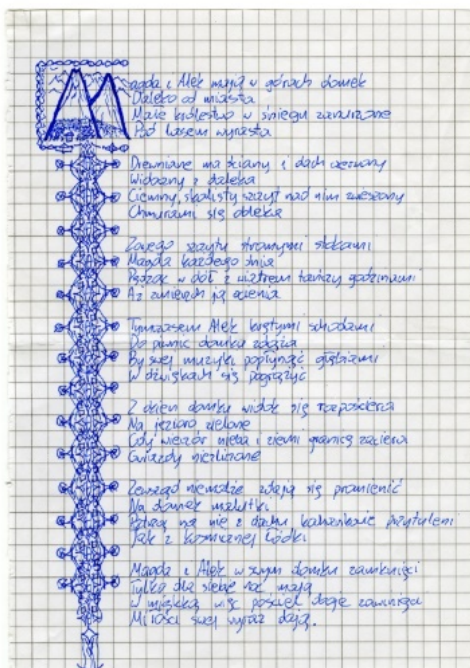 Magda i Alek mają w górach domek
Daleko od miasta
Małe królestwo w śniegu zanurzone
Pod lasem wyrasta
Drewniane ma ściany i dach czerwony
Widoczny z daleka
Ciemny, skalisty szczyt nad nim zwieszony
Chmurami się obleka
Z owego szczytu stromymi stokami
Magda każdego dnia
w dół z wiatrem tańczy godzinami
Aż zmierzch ją ocienia
Tymczasem Alek krętymi schodami
Do piwnic domku zdąża
By swej muzyki popłynąć głębiami
W dźwiękach się pogrążyć
Z okien domku widok się rozpościera
Na jezioro zielone
Gdy wieczór nieba i ziemi granicę zaciera
Gwiazdy niezliczone
Zewsząd zdają się promienić
Na domek malutki
Patrzą na nie z dachu kochankowie przytuleni
Jak z kosmicznej łódki
Magda i Alek w swym domku zamknięci
Tylko dla siebie noc mają
W miękką więc pościel
Miłości swej wyraz dają.